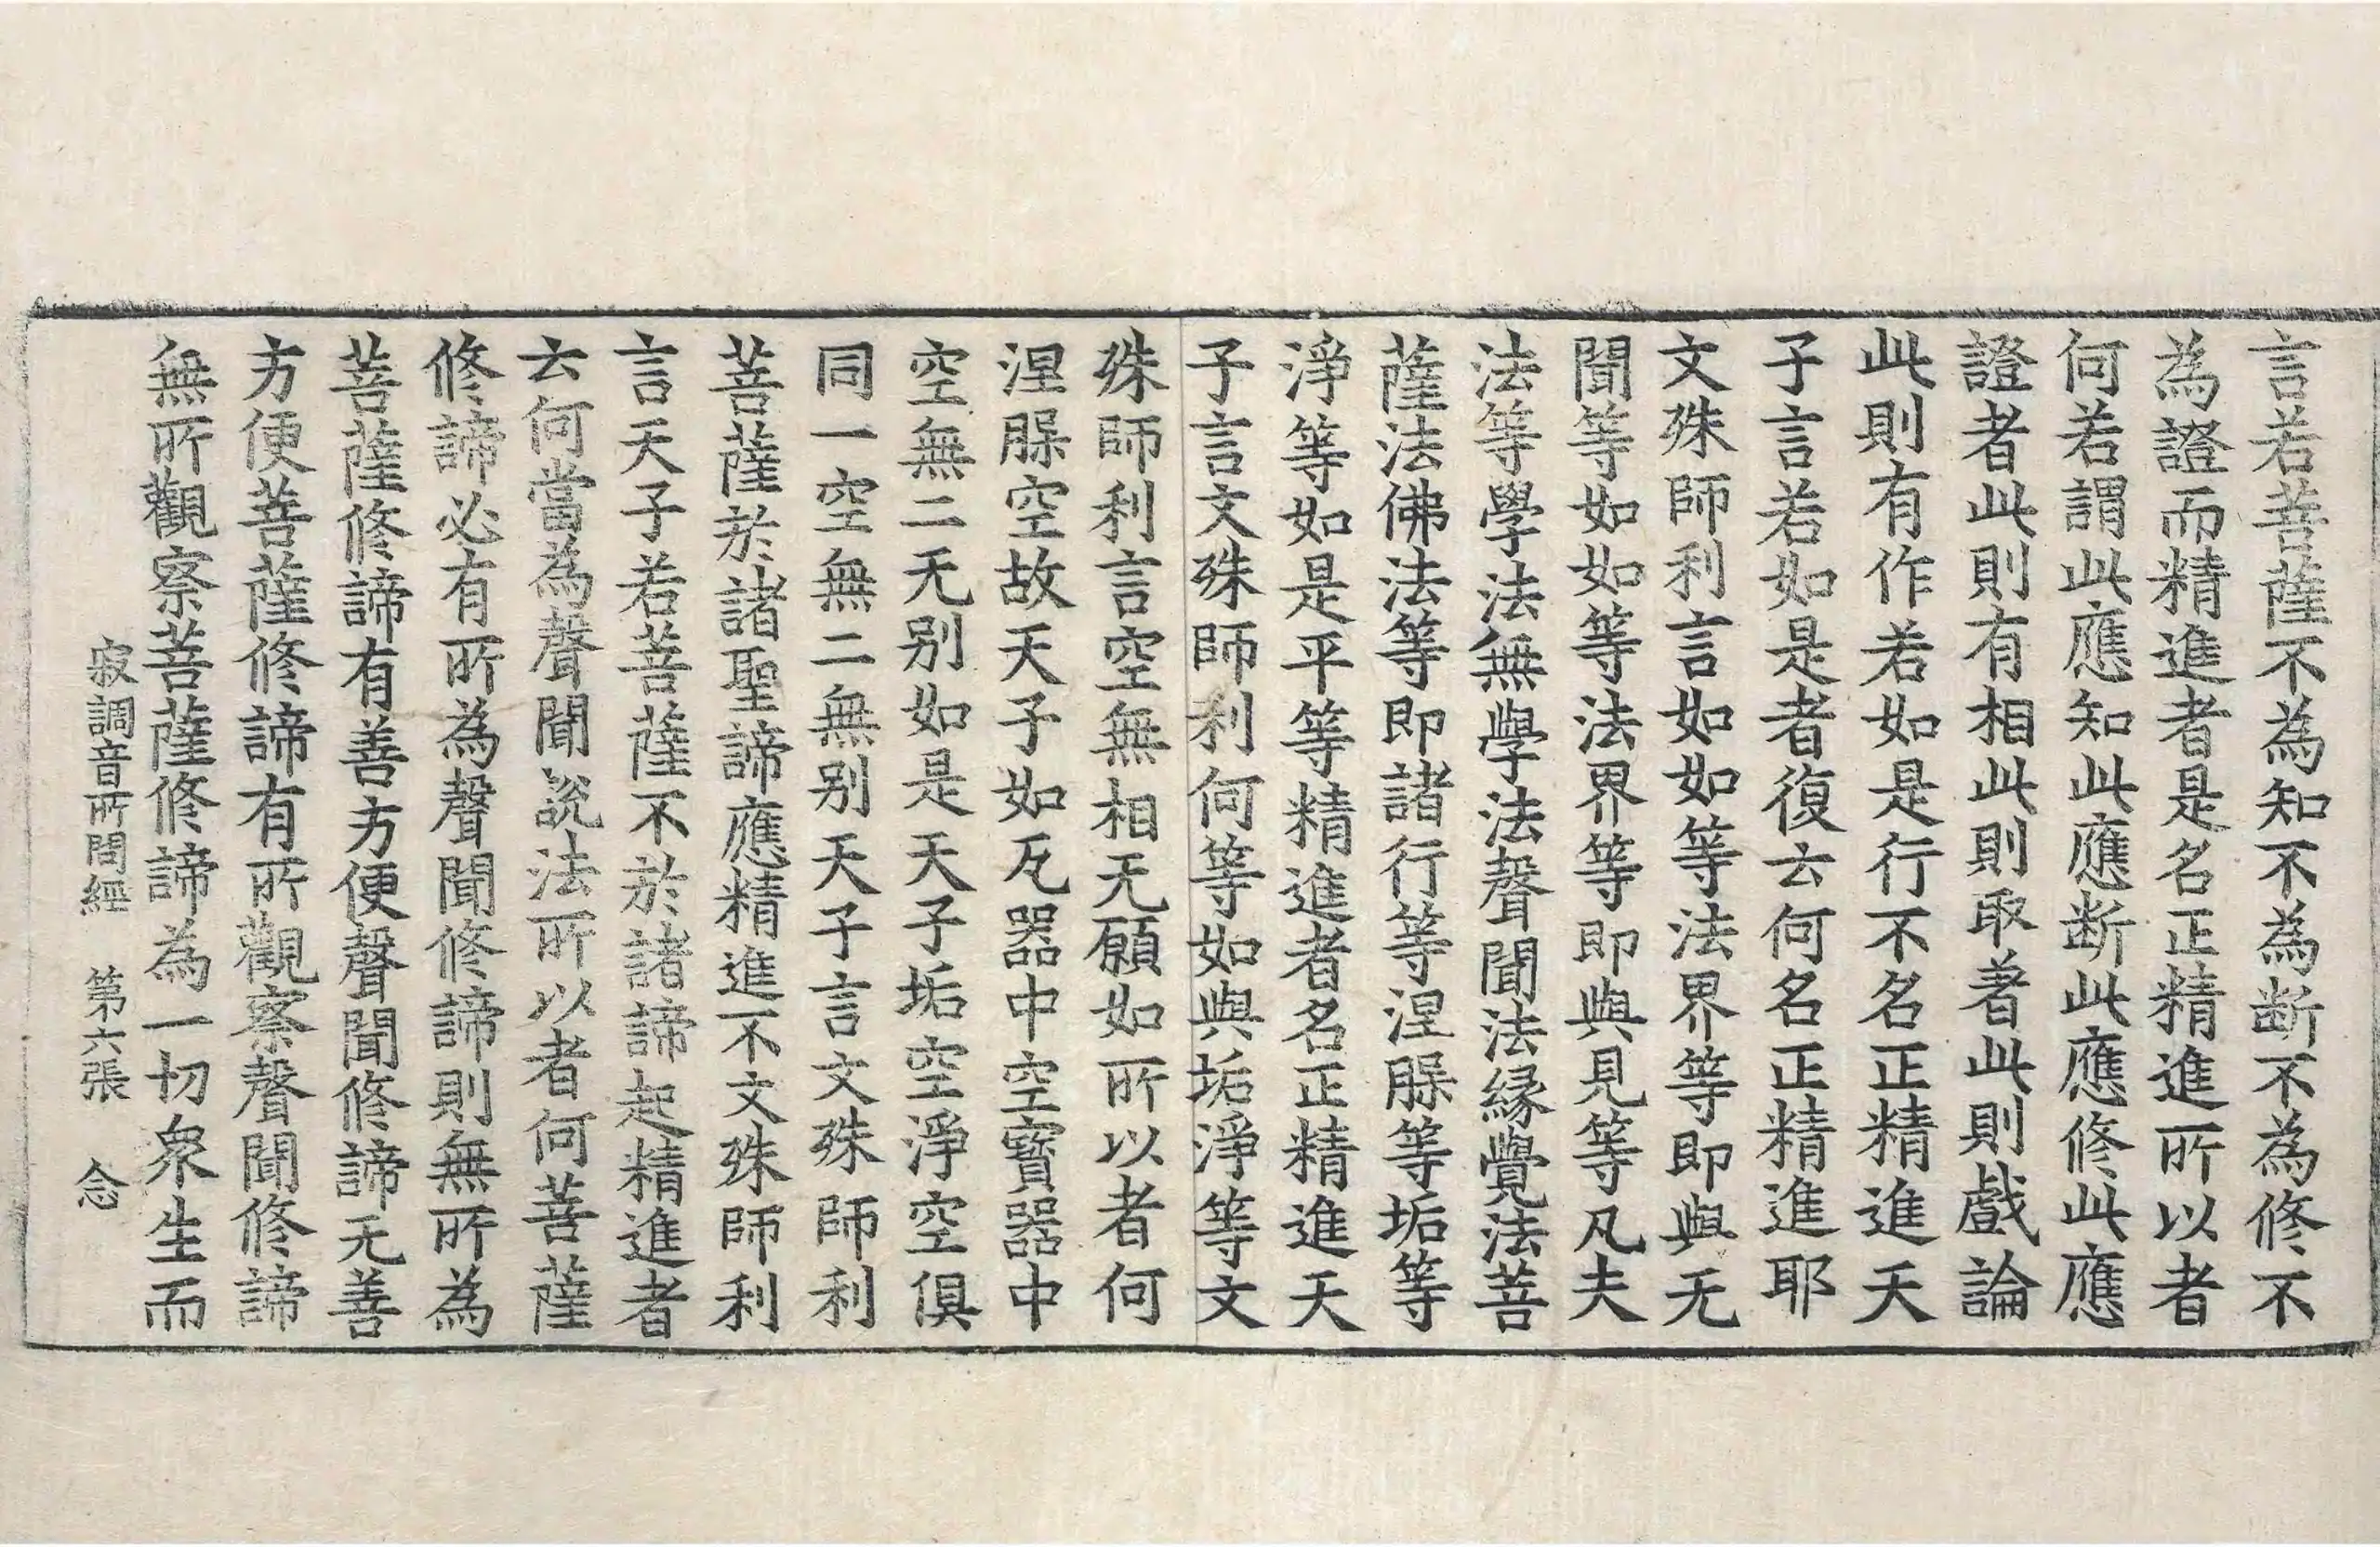 言若菩薩不為知不為断不為修不
為證而精進者是名正精進所以者
何若謂此應知此應断此應修此應
證者此則有相此則取著此則戲論
此則有作若如是行不名正精進天
子言若如是者復云何名正精進耶
文殊師利言如如等法界等即與无
聞等如如等法界等即與見等凡夫
法等學法無學法聲聞法縁覺法菩
薩法佛法等即諸行等涅槃等垢等
淨等如是平等精進者名正精進天
子言文殊師利何等如與垢淨等文
殊師利言空無相无願如所以者何
涅槃空故天子如瓦器中空寶器中
空無二无别如是天子垢空淨空俱
同一空無二無别天子言文殊師利
菩薩於諸聖諦應精進不文殊師利
言天子若菩薩不於諸諦起精進者
云何當為聲聞説法所以者何菩薩
修諦必有所為聲聞修諦則無所為
菩薩修諦有善方便聲聞修諦无善
方便菩薩修諦有所觀察聲聞修諦
無所觀察菩薩修諦為一切衆生而
寂調音所問經 第六張 念